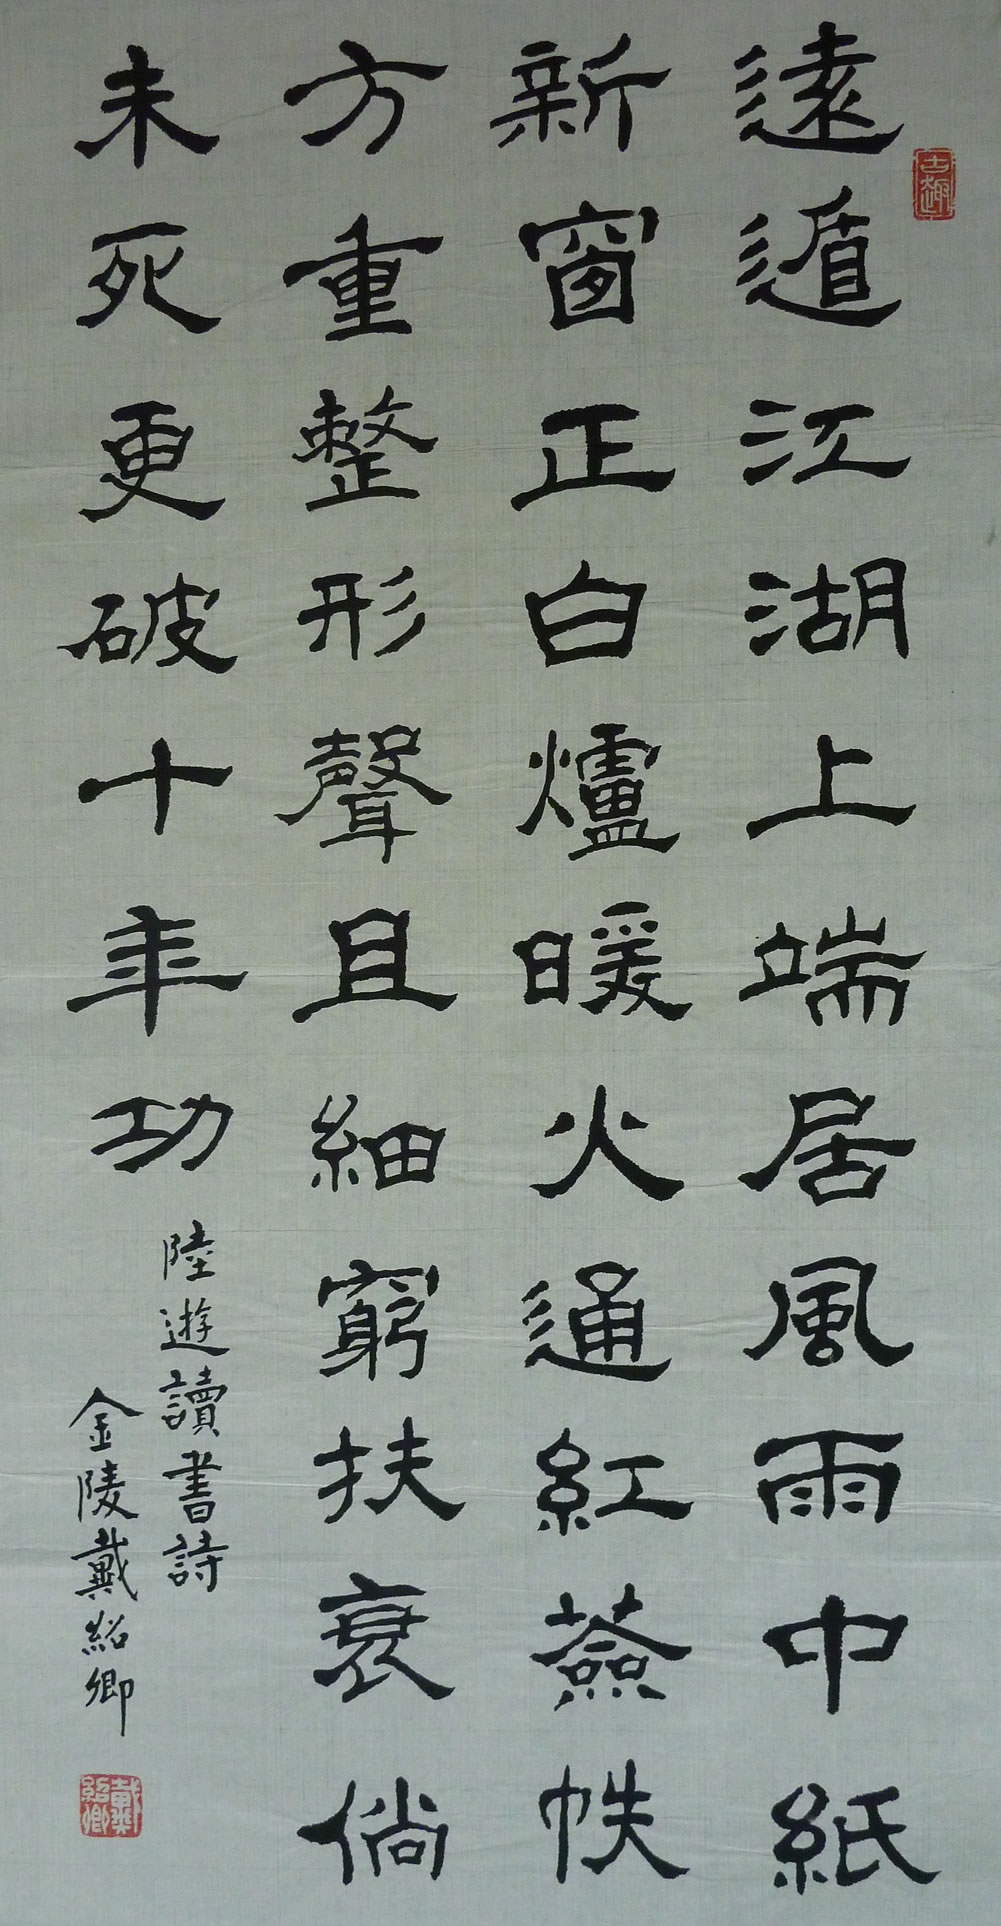 古趣
遠遁江湖上端居風雨中紙
新窗正白爐暖火通紅薟帙
方重整形聲且細窮扶衰倘
未死更破十年功
陸遊讀書詩
金陵戴紹卿
戴紹卿